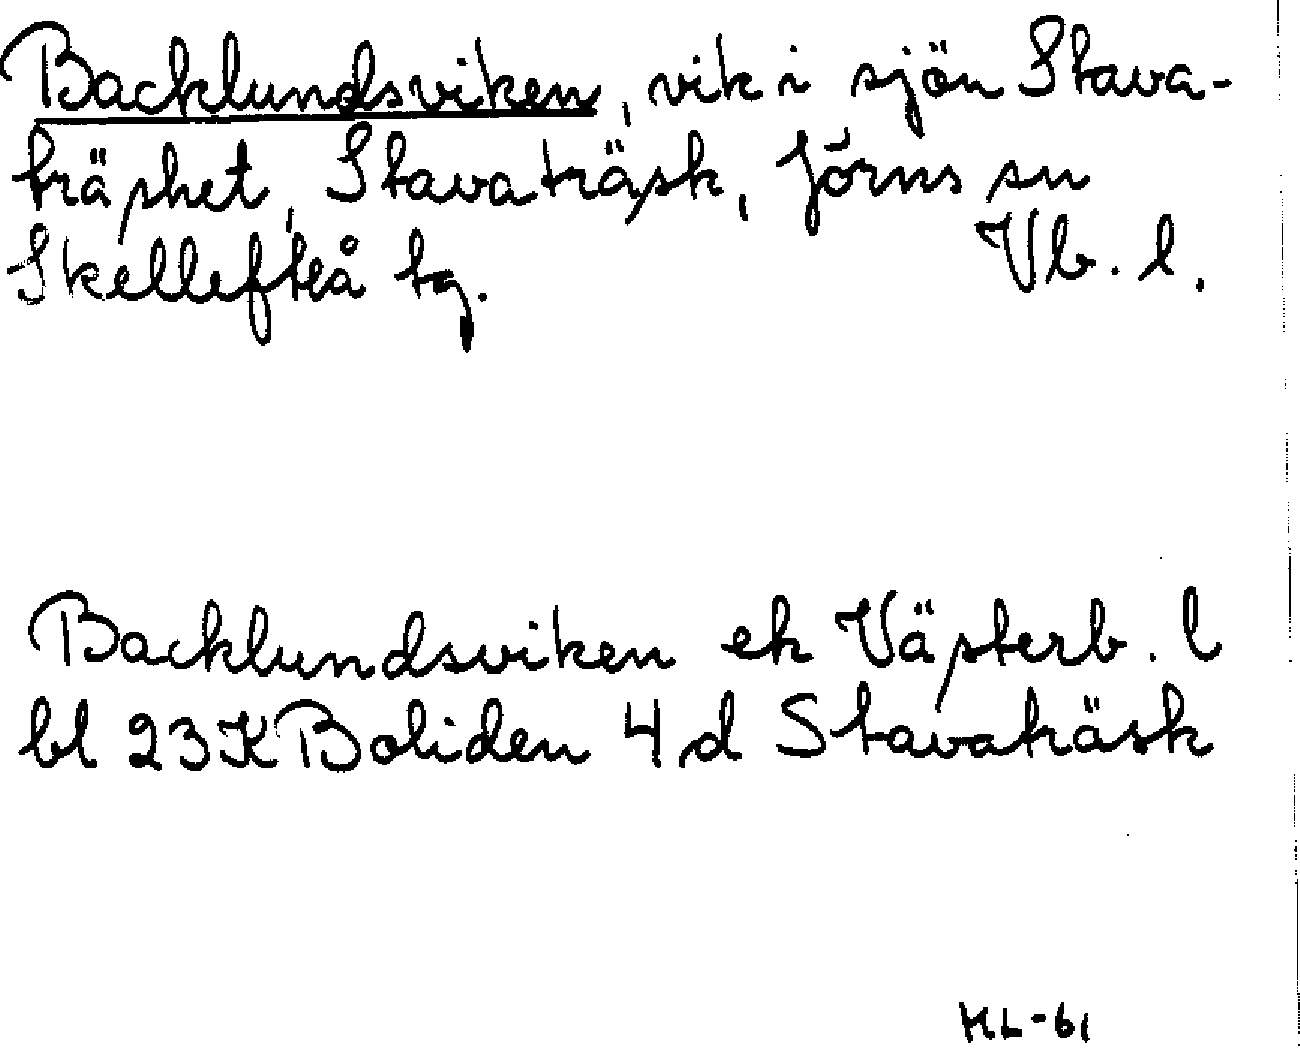 Backlundsviken, vik i sjön Stava-
träsket, Stavaträsk, Jörns sn
Skellefteå tg. Vb. l.
Backlundsviken ek Västerb. l
bl 23K Boliden 4d Stavaträsk
HL-61